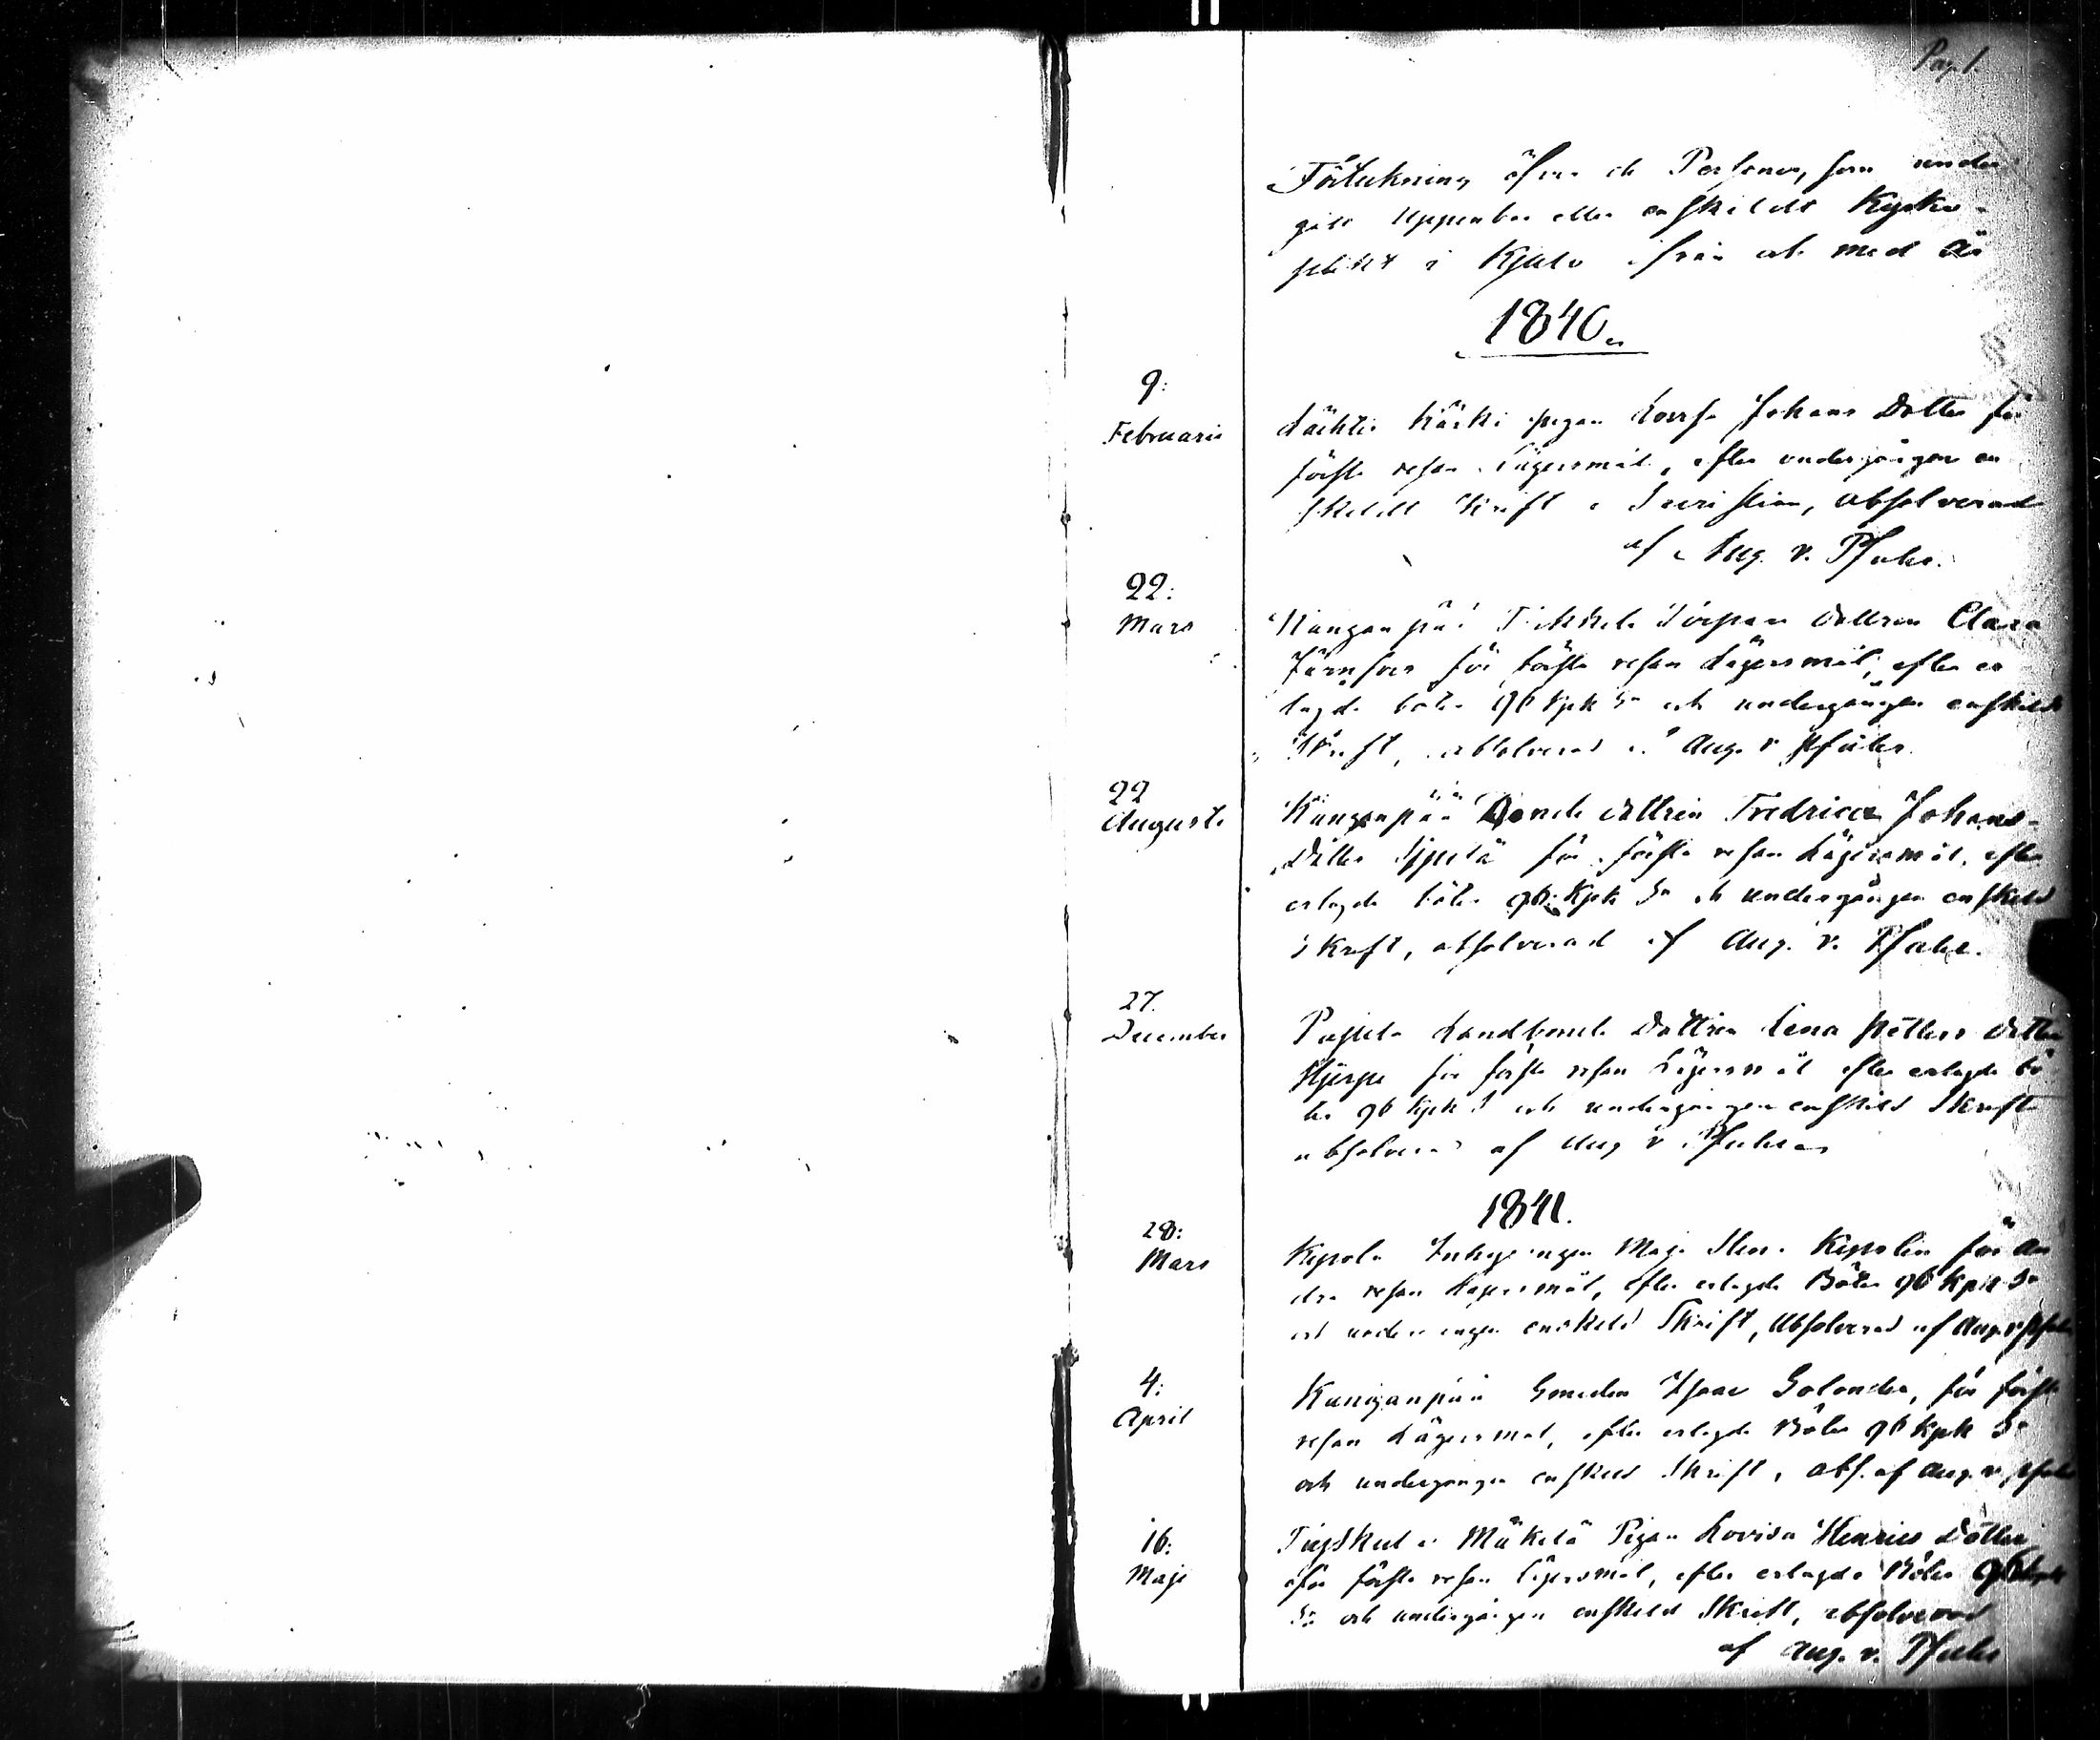 Pag. 1.
Förtekning öfver de Personer, som under
gått Uppenbar eller enskildt Kyrko-
plikt i Kjulo ifrån och med År
1840.
9:
Februarii
Lähtis Härki pigan Lovisa Johans Dotter för
första resan Lägersmål, efter undergången en
skildt Skrift i Sacristian, absolverad
af Aug. v. Pfaler.
22:
Mars
Kanganpää Torpare dottren Clara
Järnfors för första resan Lägersmål, efter er
lagde böter 96 Kpk Sr och undergången enskild
Skrift, absolverad af Aug. v Pfaler.
22
Augusti
Kanganpää Bonde dottren Fredrica Johans-
Dotter för första resan Lägersmål, efter
erlagde böter 96 Kpk Sr och undergången enskild
Skrift, absolverad af Aug. v. Pfaler.
27.
December
Landbonde Dottren Lena Petters dotter
för första resan Lägersmål efter erlagde bö
ter 96 Kpk S och undergången enskild Skrift
absolverad af Aug v Pfaler
1841.
28:
Mars
Kepola Inhys pigan Maja Stina för an
dra resan Lägersmål, efter erlagde Böter 96 Kpk Sr
och undergången enskild Skrift, Absolverad af Aug. v Pfaler
4:
April
Kanganpää Smeden Isaac Golonder, för första
resan Lägersmål, efter erlagde Böter 96 Kpk Sr
och undergången enskild Skrift, abs. af Aug. v. Pfaler
16:
Maji
Mäkelä Pigan Lovisa Henrics Dotter
för första resan Lägersmål, efter erlagde Böter 96 Kpk
Sr och undergången enskild Skrift, absolverad
af Aug. v. Pfaler